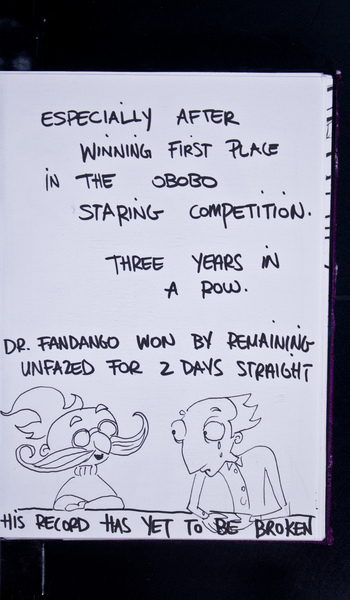 ESPECIALLY AFTER
WINNING FIRST PLACE
IN THE OBOBO
STARING COMPETITION.
THREE YEARS IN
A ROW.
DR. FANDANGO WON BY REMAINING
UNFAZED FOR 2 DAYS STRAIGHT
HIS RECORD HAS YET TO BE BROKEN